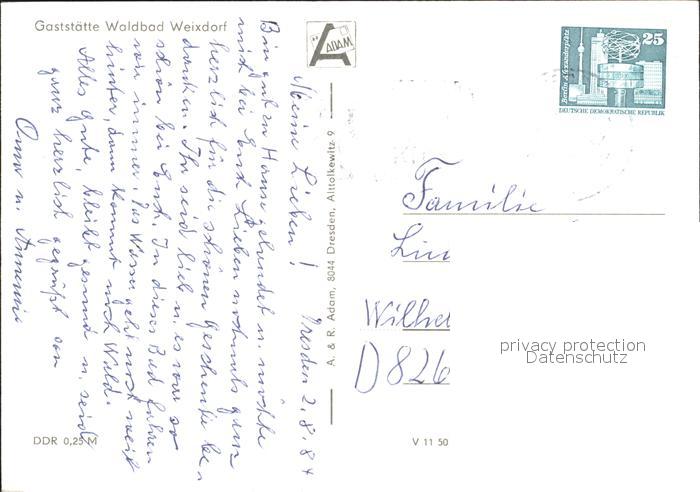 Gaststätte Waldbad Weixdorf
ADAM
Dresden 2.8.84
Meine Lieben!
Bin gut zu Hause gelandet u. möchte
mich bei Euch Lieben nochmals ganz
herzlich für die schönen Geschenke be-
danken. Ihr seid lieb u. es war so
schön bei Euch. In dieses Bad fahren
wir immer. Das Wasser geht noch weit
hinter, dann kommt noch Wald.
Alles Gute, bleibt gesund u. seid
ganz herzlich gegrüßt von
Oma u.
DDR 0,25 M
V 11 50
A. & R. Adam, 8044 Dresden, Alttolkewitz 9
Berlin, Alexanderplatz
25
DEUTSCHE DEMOKRATISCHE REPUBLIK
Familie
Lin
Wilhe
D 826
privacy protection
Datenschutz